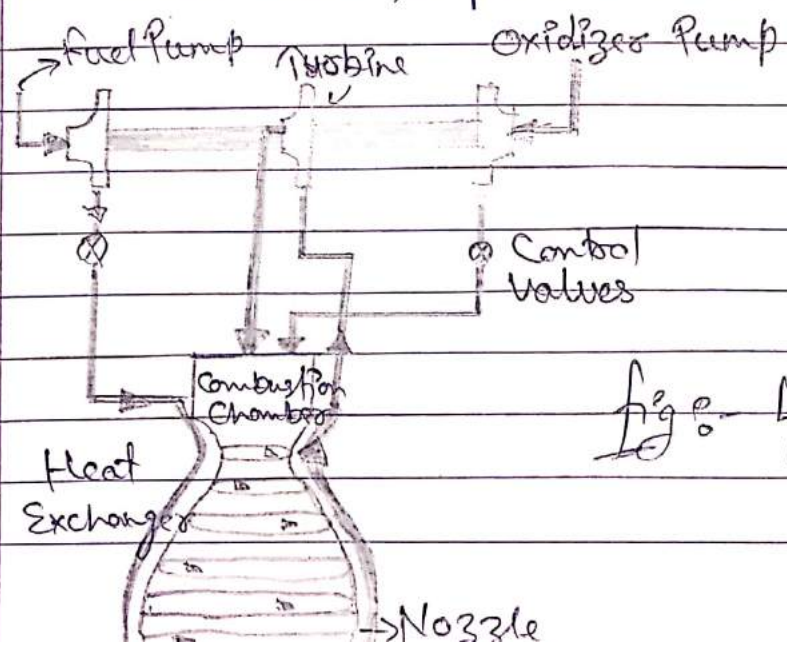 Fuel Pump
Turbine
Oxidizer Pump
Control
Valves
Combustion
Chamber
fig :-
Heat
Exchanger
Nozzle